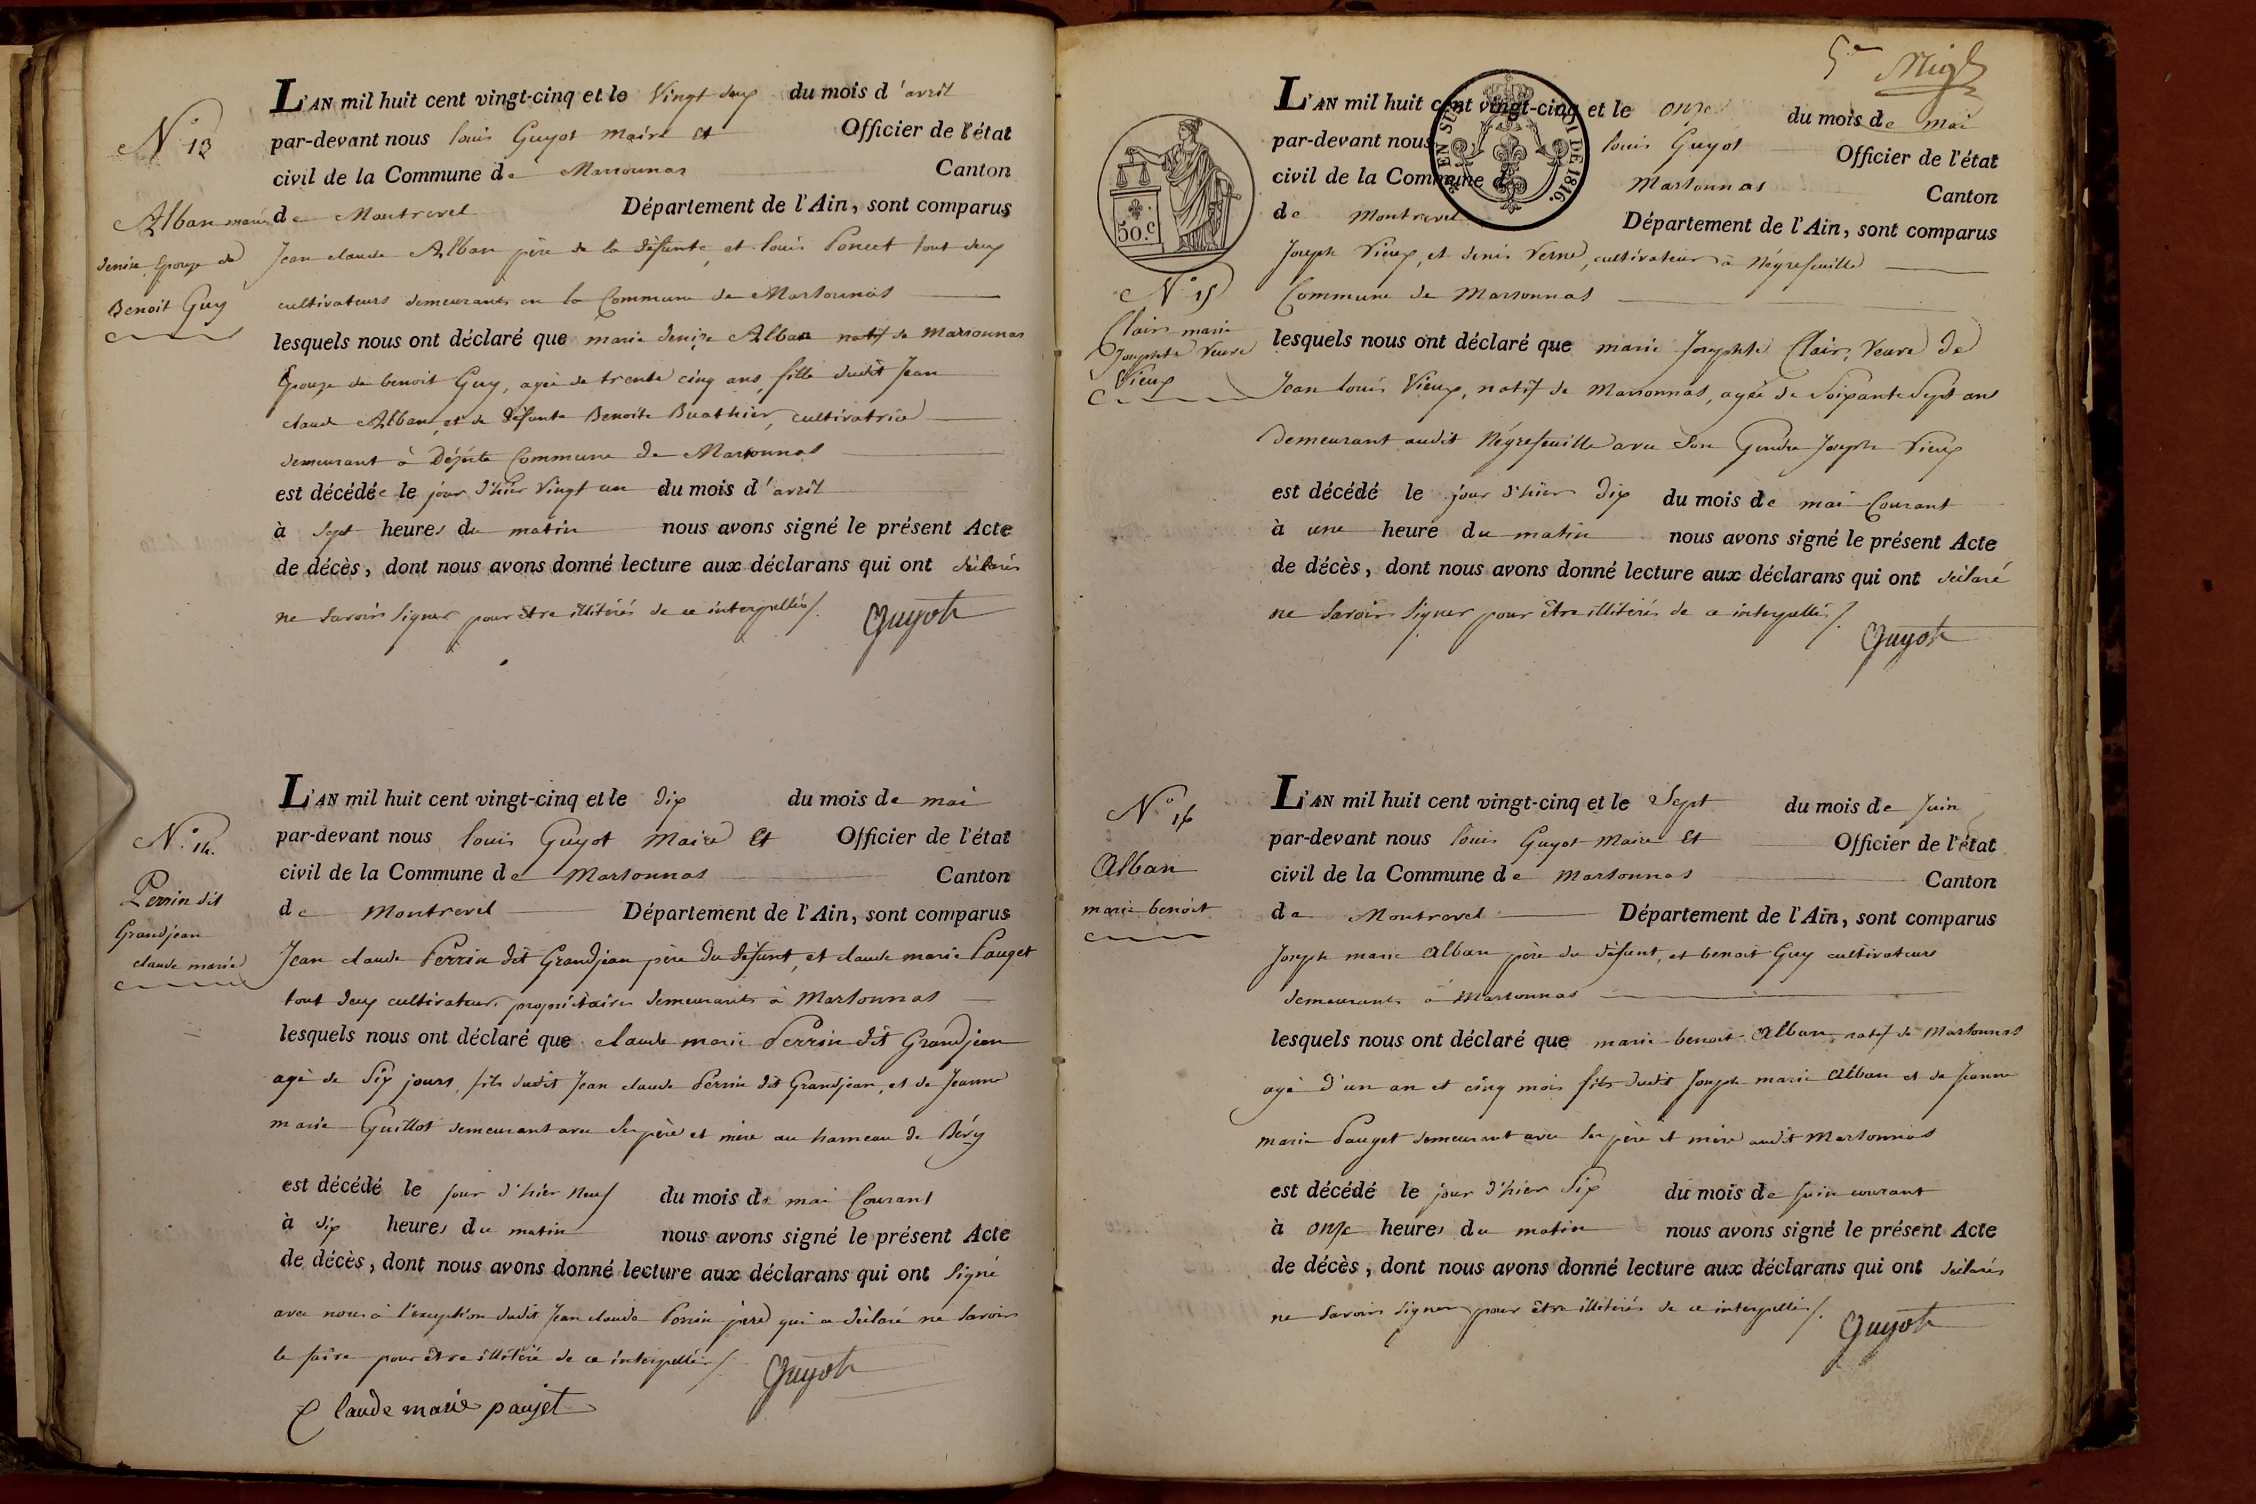 N° 13
Alban marie
denise Epouze de
Benoit Guy
L'AN mil huit cent vingt-cinq et le Vingt deux du mois d'avril
par-devant nous louis Guyot Maire et Officier de l'état
civil de la Commune de Marsonnas Canton
de Montrevel Département de l'Ain, sont comparus
Jean claude Alban père de la défunte, et louis Poncet tout deux
cultivateurs demeurants en la Commune de Marsonnas
lesquels nous ont déclaré que marie denise Alban natif de Marsonnas
Epouze de benoit Guy, agée de trente cinq ans, fille dudit Jean
claude Alban, et de défunte Benoite Buathier, cultivatrice
demeurant à Commune de Marsonnas
est décédée le jour d'hier Vingt un du mois d'avril
à sept heures du matin nous avons signé le présent Acte
de décès, dont nous avons donné lecture aux déclarans qui ont déclarés
ne savoir signer pour être illitérés de ce interpellés /.
Guyot
N° 14.
Perrin dit
Grandjean
claude marie
L'AN mil huit cent vingt-cinq et le dix du mois de mai
par-devant nous louis Guyot Maire et Officier de l'état
civil de la Commune de Marsonnas Canton
de Montrevel Département de l'Ain, sont comparus
Jean claude Perrin dit Grandjean père du défunt, et claude marie Pauget
tout deux cultivateurs propriétaires demeurants à Marsonnas
lesquels nous ont déclaré que claude marie Perrin dit Grandjean
agé de six jours, fils dudit Jean claude Perrin dit Grandjean, et de Jeanne
marie Guillot demeurant avec ses père et mère au hameau de Béry
est décédé le jour d'hier neuf du mois de mai Courant
à six heures du matin nous avons signé le présent Acte
de décès, dont nous avons donné lecture aux déclarans qui ont signé
avec nous à l'exception dudit Jean claude Perrin père qui a déclaré ne savoir
le faire pour être illitéré de ce interpellés /.
Guyot
Claude marie paujet
5e
EN SUS
LOI DE 1816.
50.c
N° 15
Clair marie
Josephte Veuve
Vieux
L'AN mil huit cent vingt-cinq et le onze du mois de mai
par-devant nous louis Guyot Officier de l'état
civil de la Commune de Marsonnas Canton
de Montrevel Département de l'Ain, sont comparus
Joseph Vieux, et denis Verne, cultivateurs à Négrefeuille
Commune de Marsonnas
lesquels nous ont déclaré que marie Josephte Clair, Veuve de
Jean louis Vieux, natif de Marsonnas, agée de soixante sept ans
demeurant audit Négrefeuille avec son Gendre Joseph Vieux
est décédé le jour d'hier dix du mois de mai Courant
à une heure du matin nous avons signé le présent Acte
de décès, dont nous avons donné lecture aux déclarans qui ont déclaré
ne savoir signer pour être illitérés de ce interpellés /.
Guyot
N° 16
Alban
marie benoit
L'AN mil huit cent vingt-cinq et le Sept du mois de Juin
par-devant nous louis Guyot Maire et Officier de l'état
civil de la Commune de Marsonnas Canton
de Montrevel Département de l'Ain, sont comparus
Joseph marie Alban père du défunt, et benoit Guy cultivateurs
demeurants à Marsonnas
lesquels nous ont déclaré que marie benoit Alban, natif de Marsonnas
agé d'un an et cinq mois fils dudit Joseph marie Alban et de Jeanne
marie Pauget demeurant avec ses père et mère audit Marsonnas
est décédé le jour d'hier Six du mois de Juin courant
à onze heures du matin nous avons signé le présent Acte
de décès, dont nous avons donné lecture aux déclarans qui ont déclarés
ne savoir signer pour être illitérés de ce interpellés /.
Guyot